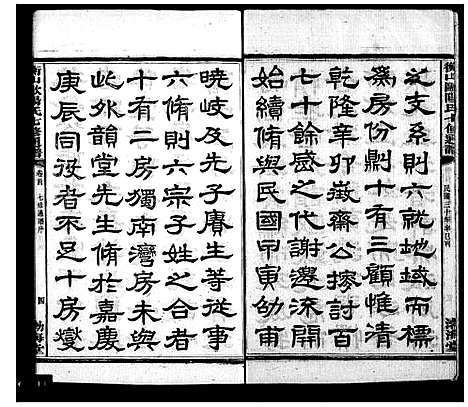 衡山歐陽氏七修通譜
民國三十年辛巳刊
渤海堂
之支系則六就地域而標
為房份剿十有三顧惟清
乾隆辛卯徵齋公搜討百
七十餘感之代謝邊流開
始續脩與民國甲寅幼甫
曉岐及先子賡生等從事
六脩則六宗子姓之合者
十有二房獨南灣房未與
此外韻堂先生脩於嘉慶
庚辰同役者不足十房燮
卷首 七修通譜序
四
渤海堂